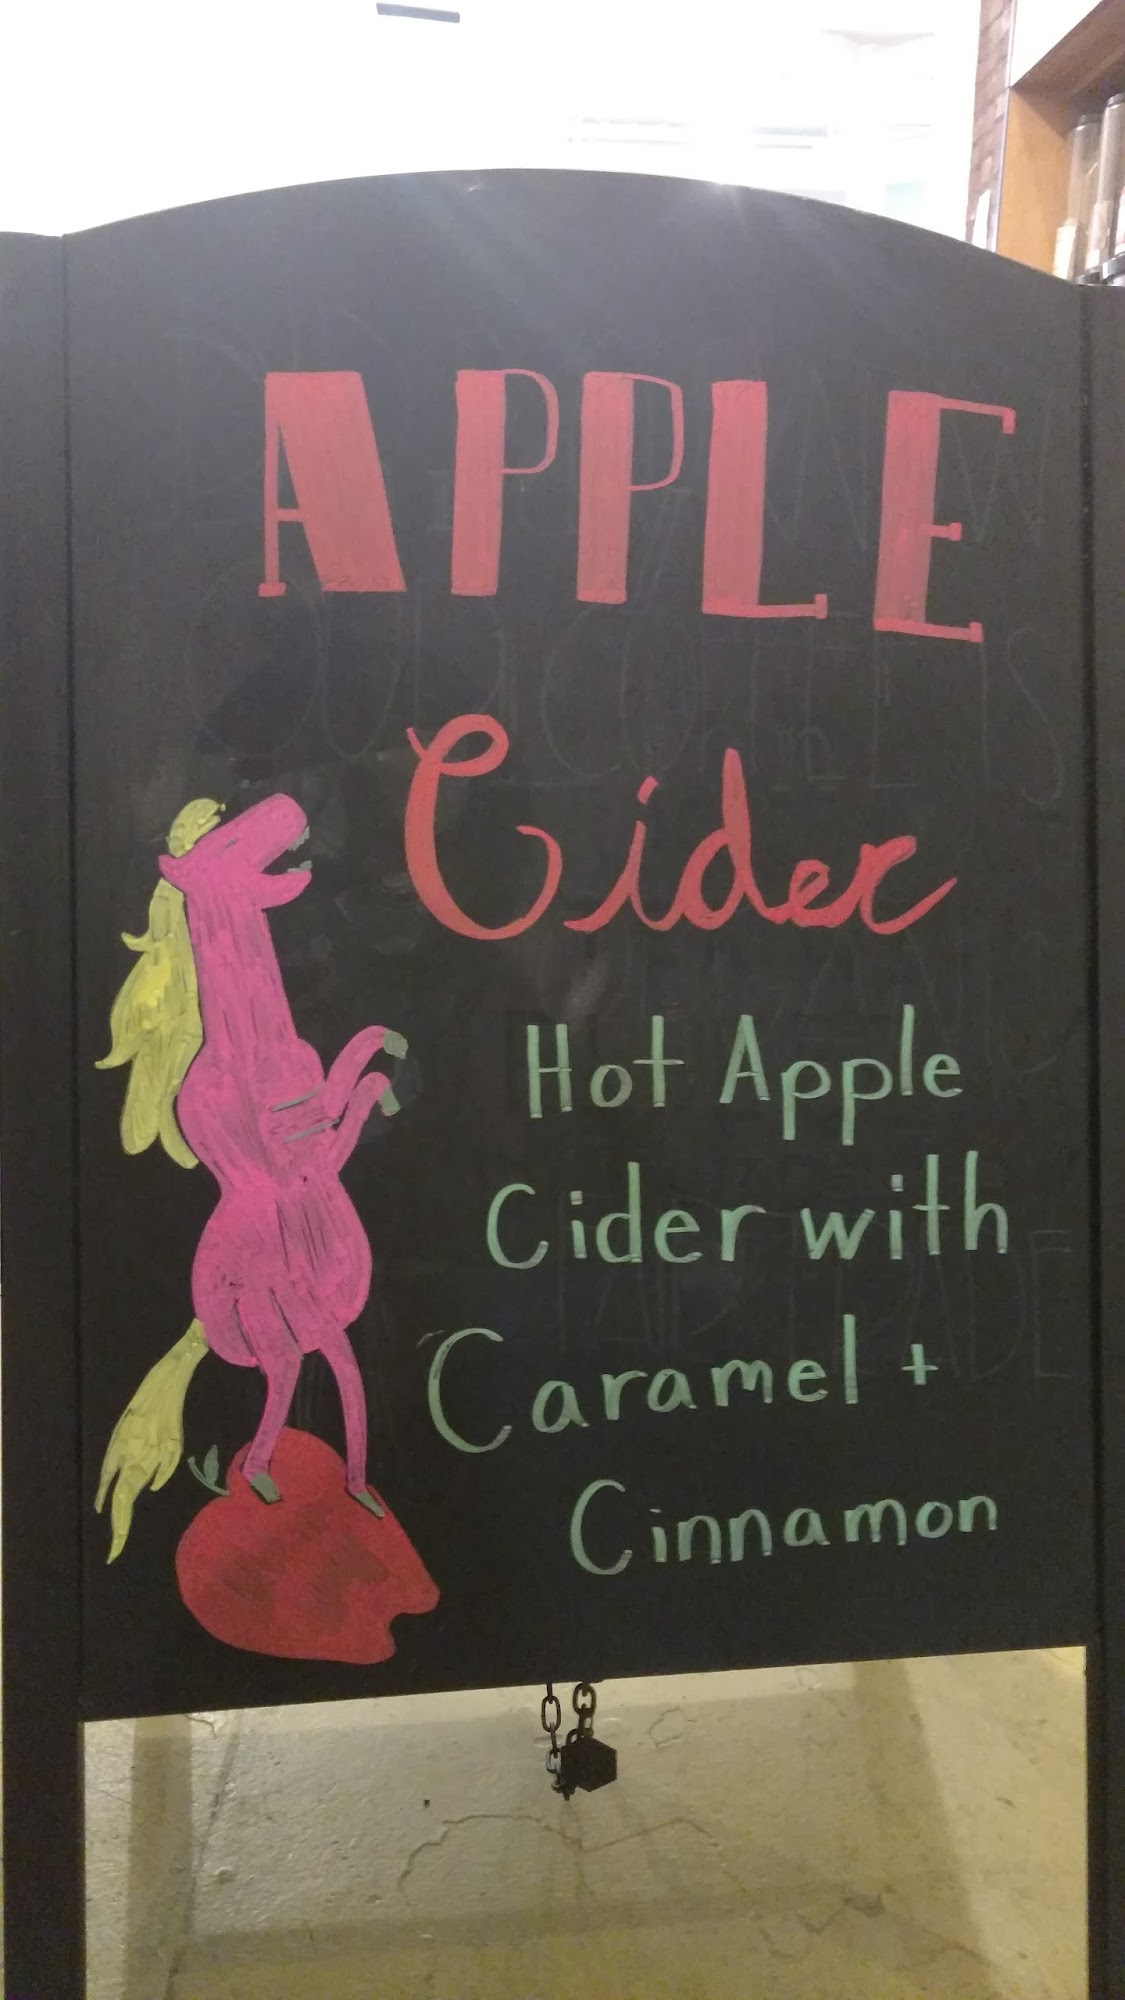 APPLE
Cider
Hot Apple
Cider with
Caramel +
Cinnamon